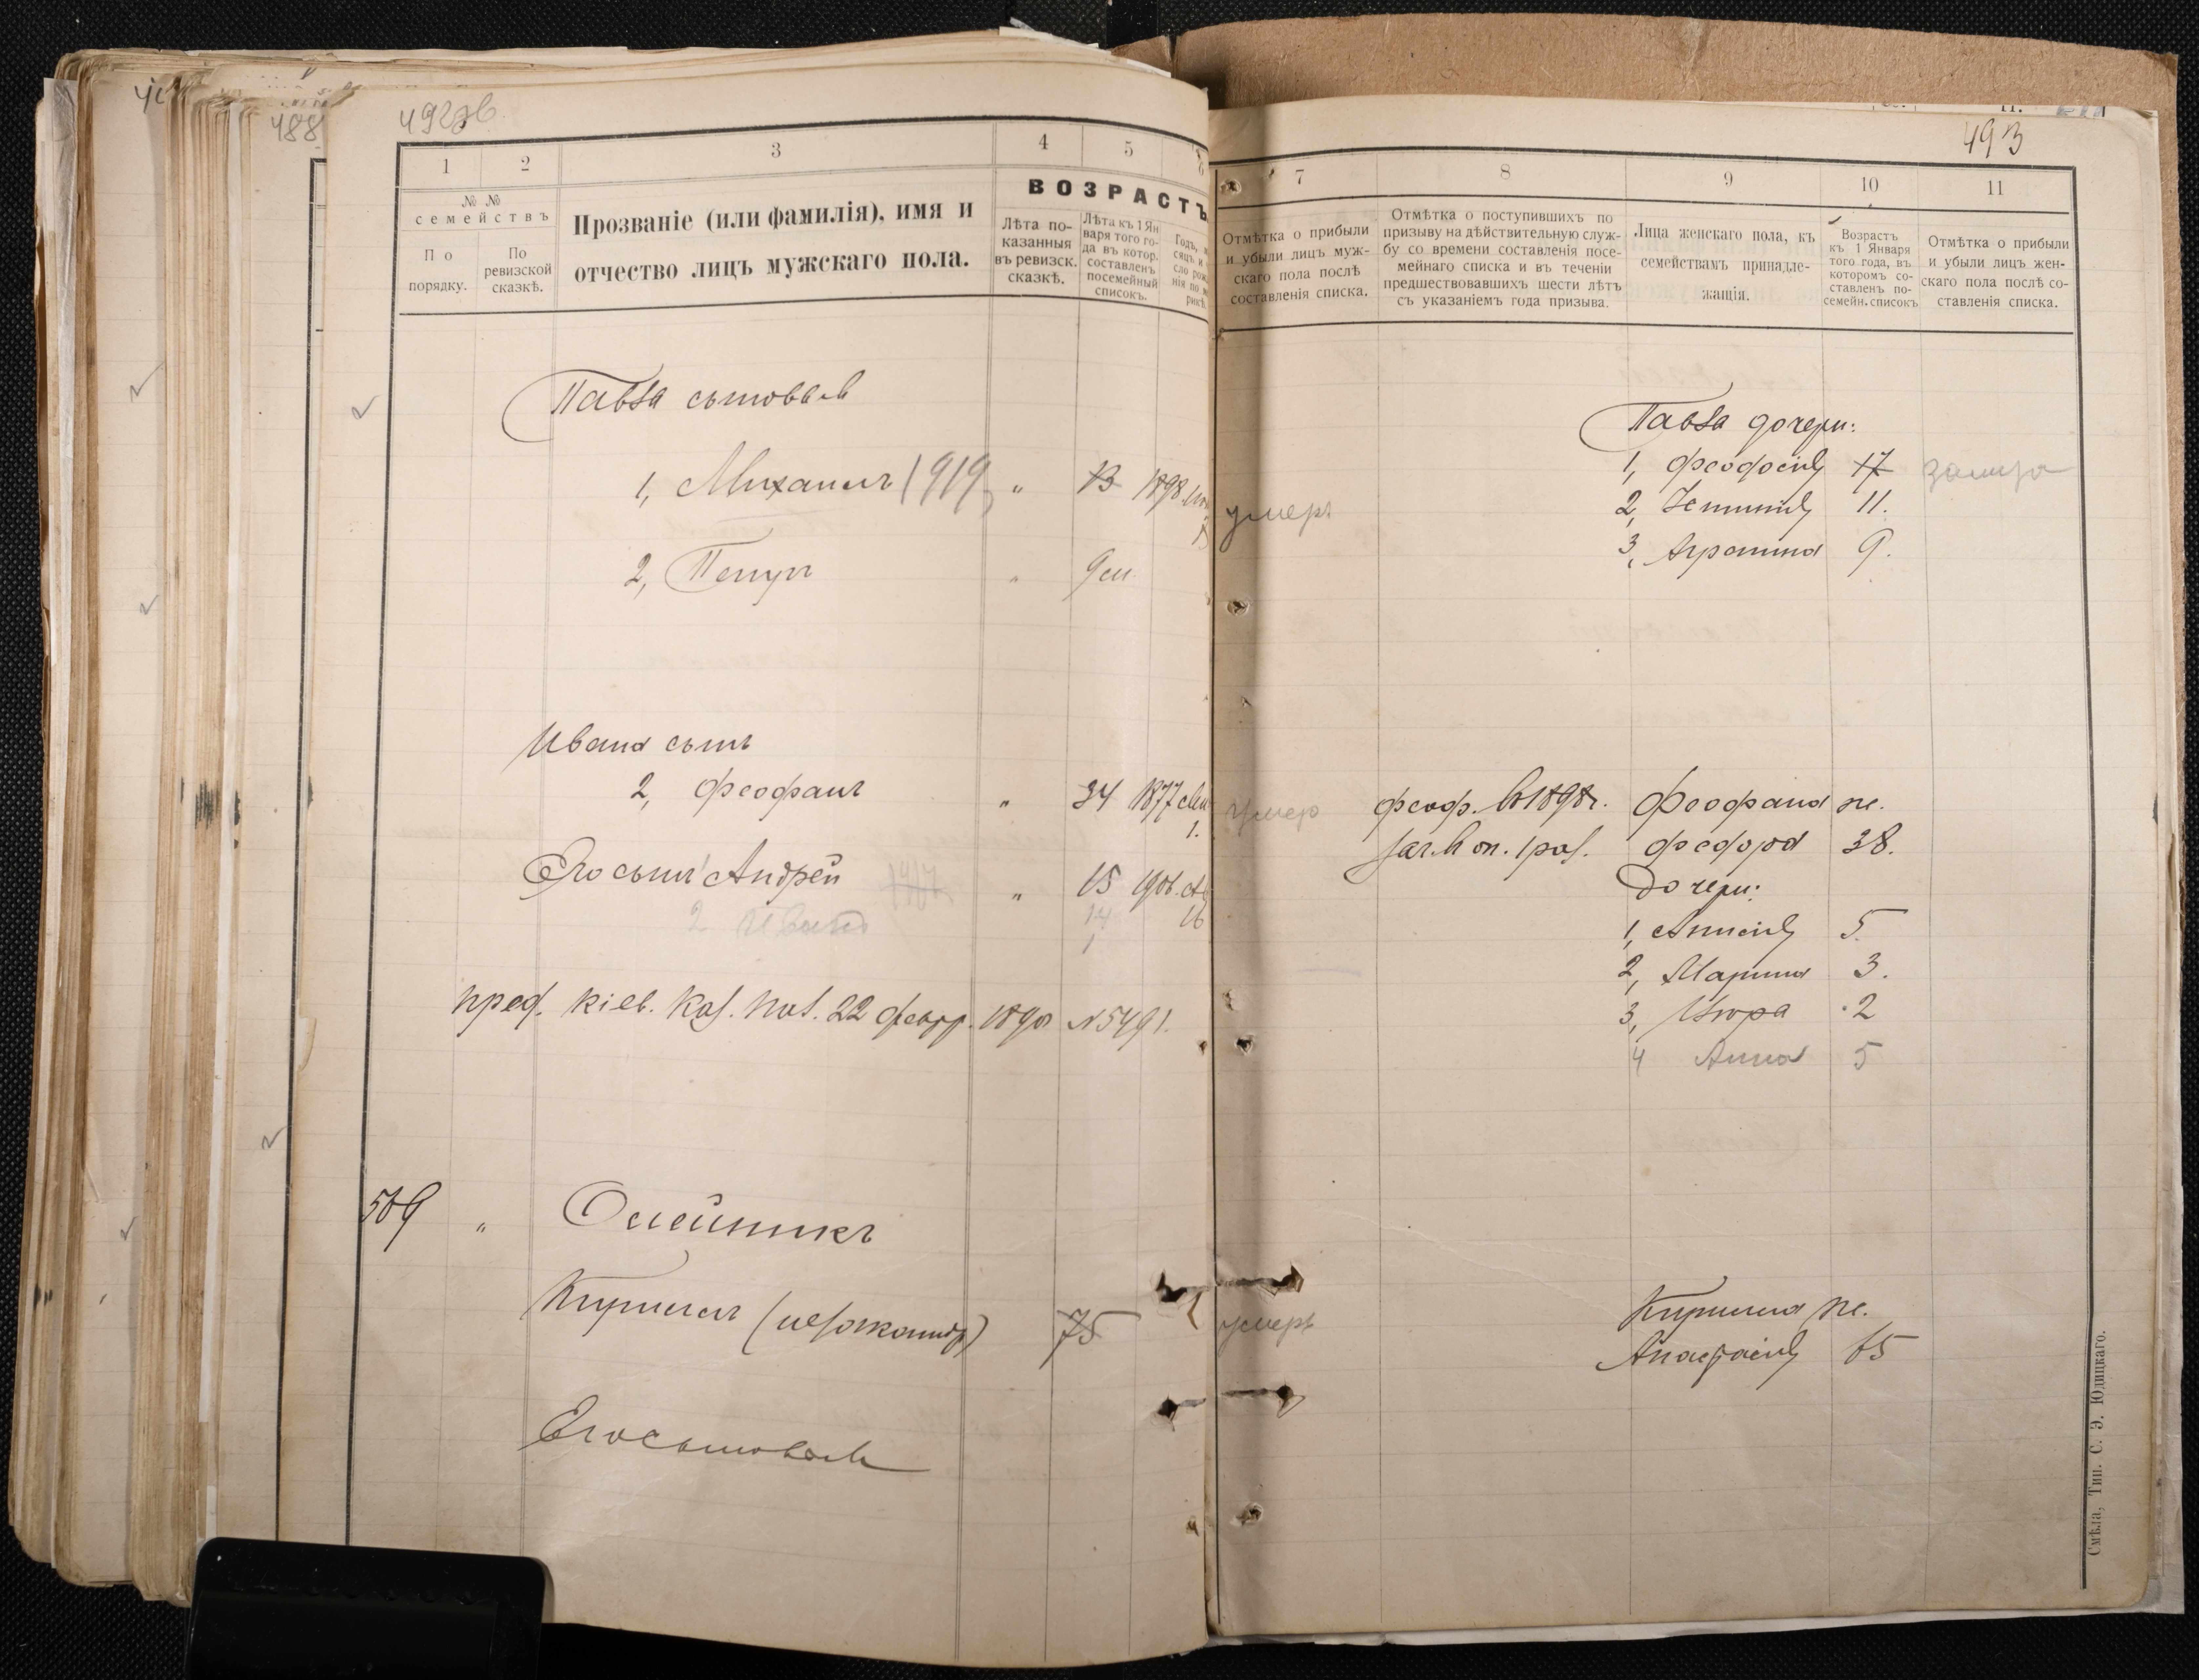 488
492об
1 2 3 4 5
№ №
семействъ
По
порядку.
По
ревизской
сказкѣ.
Прозваніе (или фамилія), имя и
отчество лицъ мужскаго пола.
ВОЗРАСТЪ
Лѣта по-
казанныя
въ ревизск.
сказкѣ.
Лѣта къ 1 Ян
варя того го-
да въ котор.
составленъ
посемейный
списокъ.
Павла сыновья
1, Михаилъ 1919 " 13 1898
2, Петръ " 9 м
Ивана сынъ
2, Феофанъ " 34 1877
1.
Его сынъ Андрей " 15 1901
2 Иванъ 14 16
1
пред. Кіев. Каз. Пал. 22 февр. 1890 №5491.
509 " Олейникъ
Кирилъ 75
Его сыновья
493
7 8 9 10 11
Отмѣтка о прибыли
и убыли лицъ муж-
скаго пола послѣ
составленія списка.
Отмѣтка о поступившихъ по
призыву на дѣйствительную служ-
бу со времени составленія посе-
мейнаго списка и въ теченіи
предшествовавшихъ шести лѣтъ
съ указаніемъ года призыва.
Лица женскаго пола, къ
семействамъ принадле-
жащія.
Возрастъ
къ 1 Января
того года, въ
которомъ со-
ставленъ по-
семейн. списокъ
Отмѣтка о прибыли
и убыли лицъ жен-
скаго пола послѣ со-
ставленія списка.
Павла дочери:
1, Феодосія 17
умеръ 2, Устинія 11.
3, Агрипина 9.
умер Феоф. въ 1898г. Феофана ж.
зач. в оп. 1 раз. Федора 38.
Дочери:
1, Анисія 5.
2, Марина 3.
3, 2
4 Анна 5
умеръ Кирилла ж.
Анастасія 65
Смѣла, Тип. С. Э. Юдицкаго.